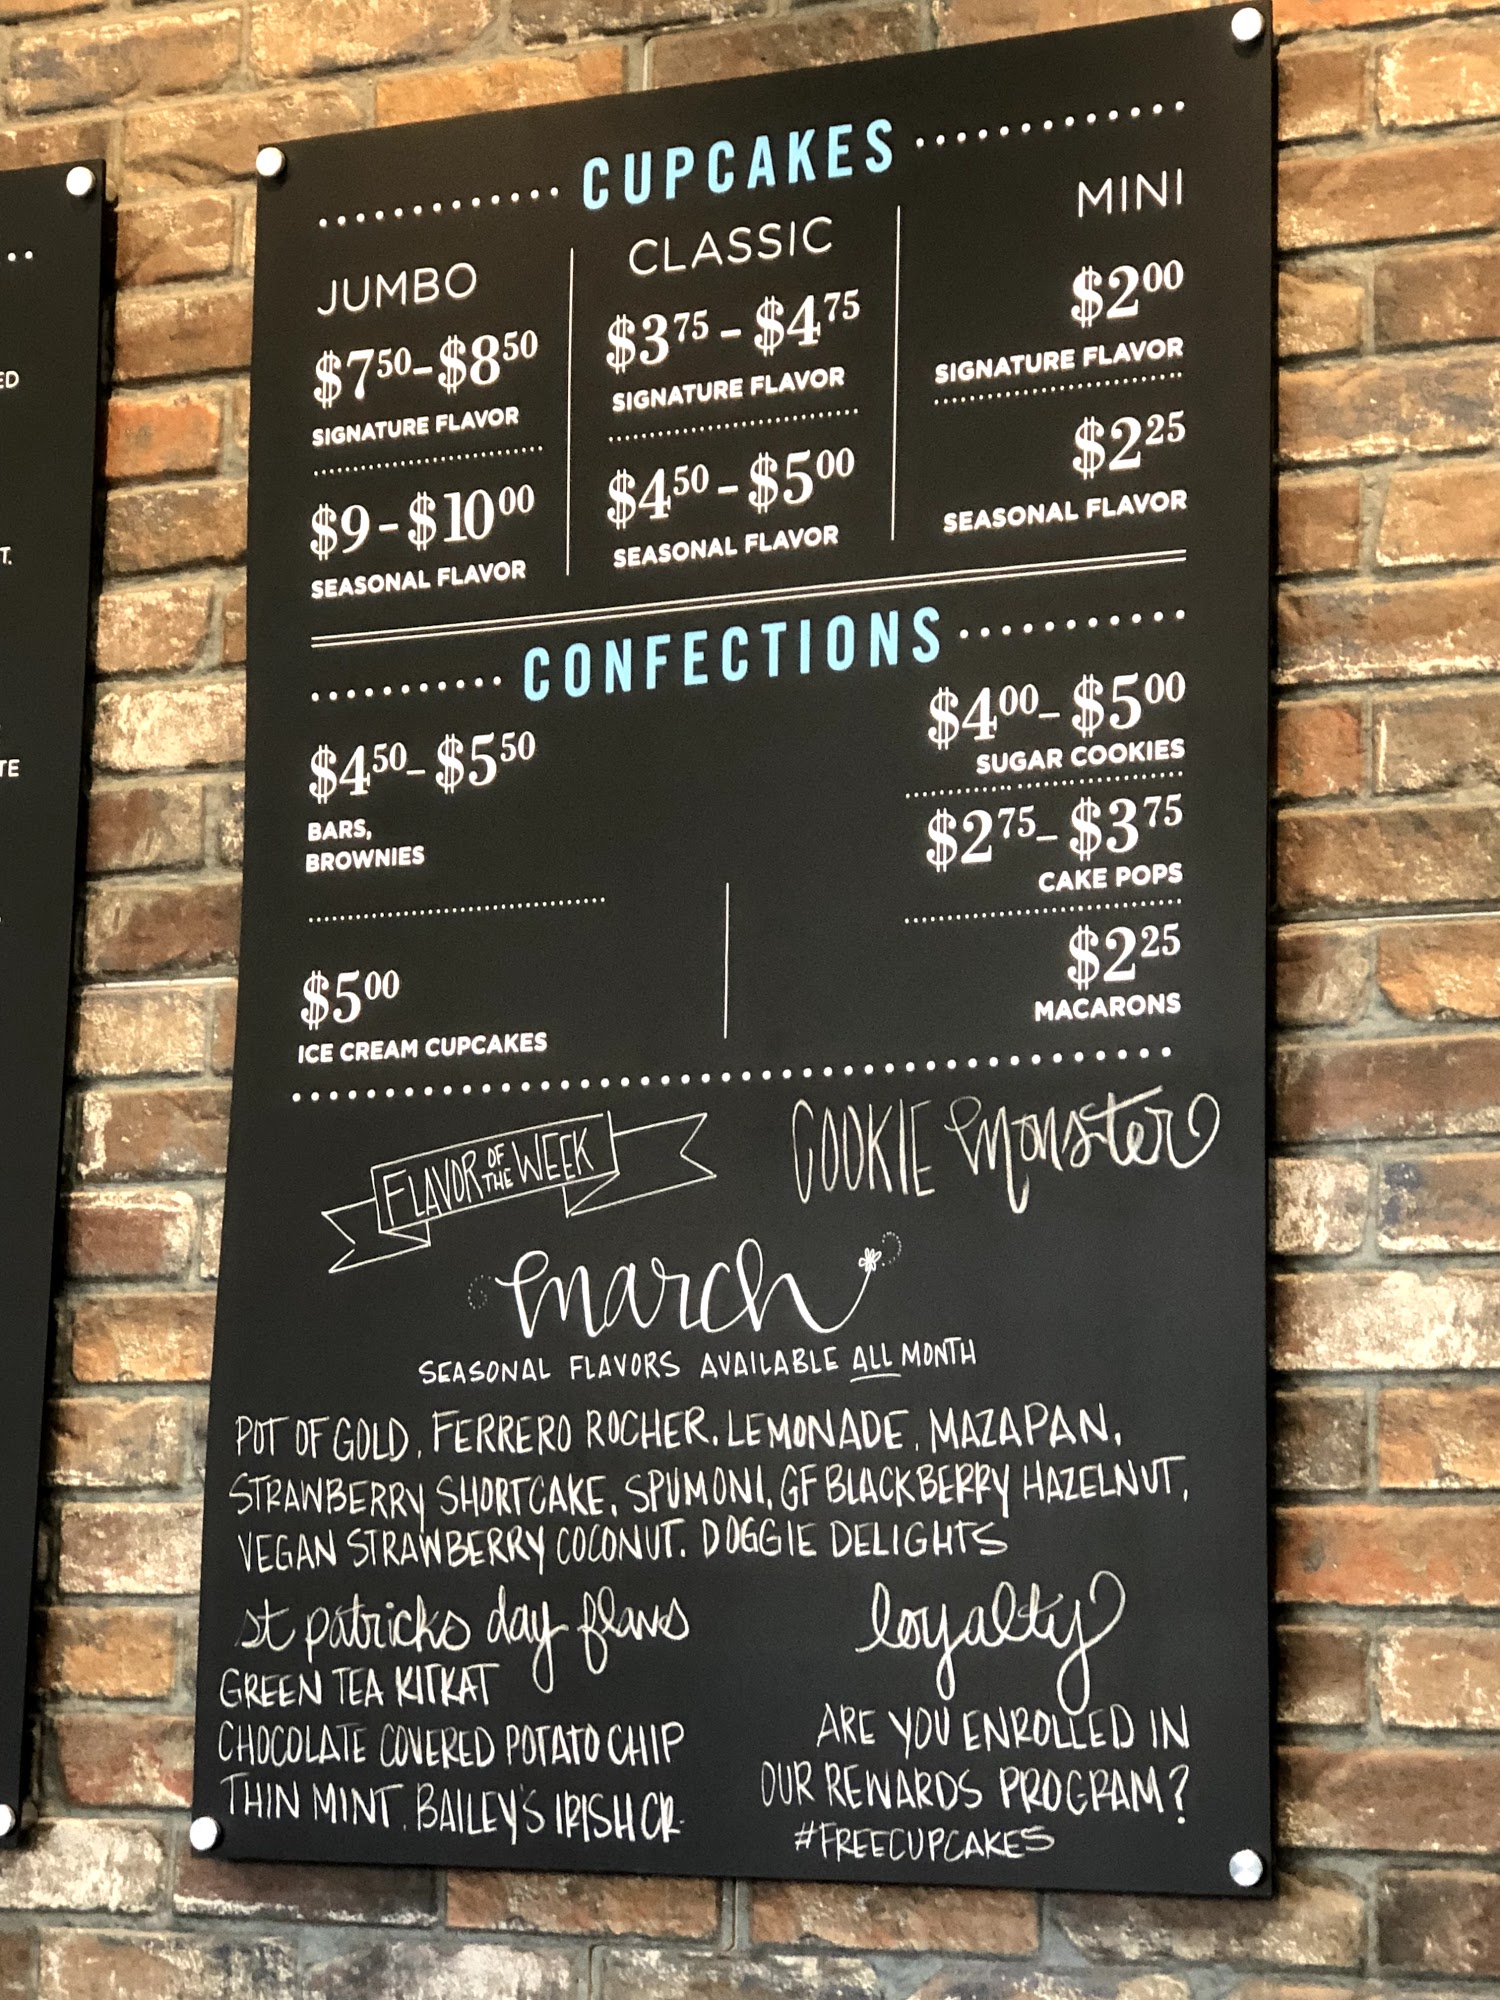 CUPCAKES
JUMBO
$7⁵⁰-$8⁵⁰
SIGNATURE FLAVOR
$9-$10⁰⁰
SEASONAL FLAVOR
CLASSIC
$3⁷⁵-$4⁷⁵
SIGNATURE FLAVOR
$4⁵⁰-$5⁰⁰
SEASONAL FLAVOR
MINI
$2⁰⁰
SIGNATURE FLAVOR
$2²⁵
SEASONAL FLAVOR
CONFECTIONS
$4⁵⁰-$5⁵⁰
BARS,
BROWNIES
$5⁰⁰
ICE CREAM CUPCAKES
$4⁰⁰-$5⁰⁰
SUGAR COOKIES
$2⁷⁵-$3⁷⁵
CAKE POPS
$2²⁵
MACARONS
FLAVOR OF THE WEEK
COOKIE monster
march
SEASONAL FLAVORS AVAILABLE ALL MONTH
POT OF GOLD, FERRERO ROCHER, LEMONADE, MAZAPAN,
STRAWBERRY SHORTCAKE, SPUMONI, GF BLACKBERRY HAZELNUT,
VEGAN STRAWBERRY COCONUT. DOGGIE DELIGHTS
st patricks day flavs
GREEN TEA KITKAT
CHOCOLATE COVERED POTATO CHIP
THIN MINT. BAILEY'S IRISH CR.
loyalty
ARE YOU ENROLLED IN
OUR REWARDS PROGRAM?
#FREECUPCAKES